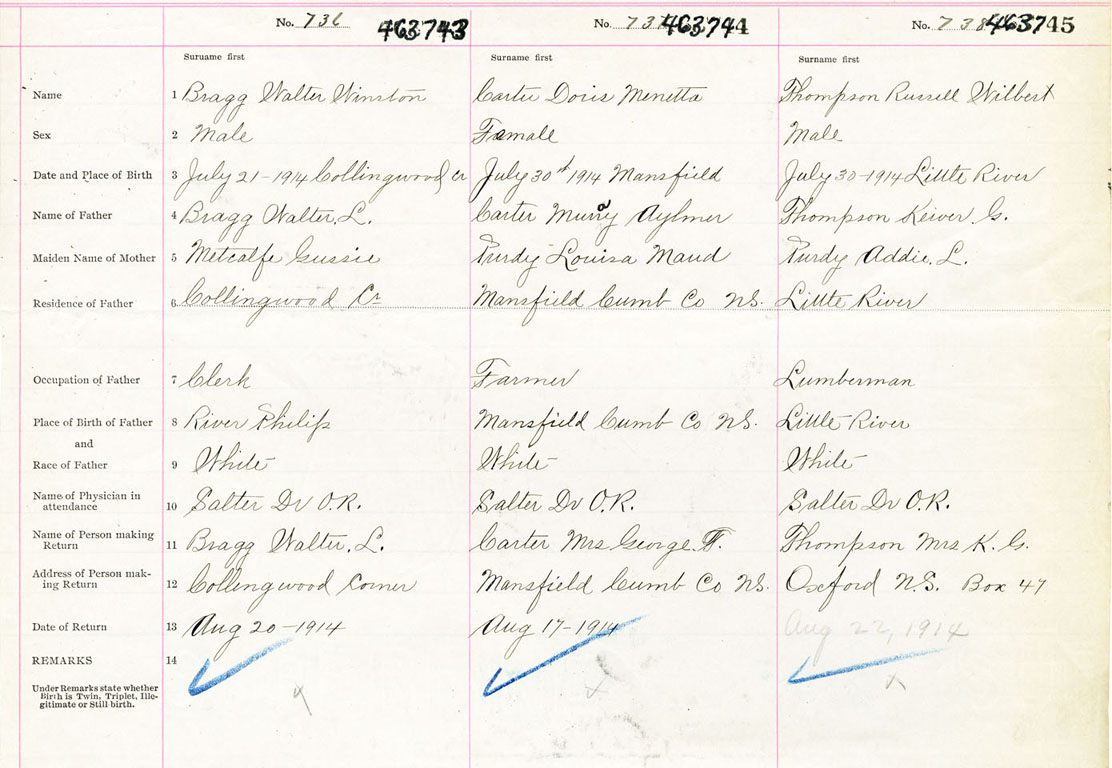 No. 736 463743 No. 737 463744 No. 738 463745
Surname first Surname first Surname first
Name 1 Bragg Walter Winston Carter Doris Menetta Thompson Russell Wilbert
Sex 2 Male Female Male
Date and Place of Birth 3 July 21-1914 Collingwood Cr July 30th 1914 Mansfield July 30-1914 Little River
Name of Father 4 Bragg Walter. L. Carter Murray Aylmer Thompson Keiver G.
Maiden Name of Mother 5 Metcalfe Gussie Purdy Louisa Maud Purdy Addie. L.
Residence of Father 6 Collingwood Cr Mansfield Cumb Co NS. Little River
Occupation of Father 7 Clerk Farmer Lumberman
Place of Birth of Father 8 River Philip Mansfield Cumb Co NS. Little River
and
Race of Father 9 White White White
Name of Physician in
attendance 10 Salter Dr O.R. Salter Dr O.R. Salter Dr O.R.
Name of Person making
Return 11 Bragg Walter. L. Carter Mrs George. F. Thompson Mrs K. G.
Address of Person mak-
ing Return 12 Collingwood Corner Mansfield Cumb Co NS. Oxford N.S. Box 47
Date of Return 13 Aug 20-1914 Aug 17-1914 Aug 22, 1914
REMARKS 14
Under Remarks state whether
Birth is Twin, Triplet, Ille-
gitimate or Still birth.